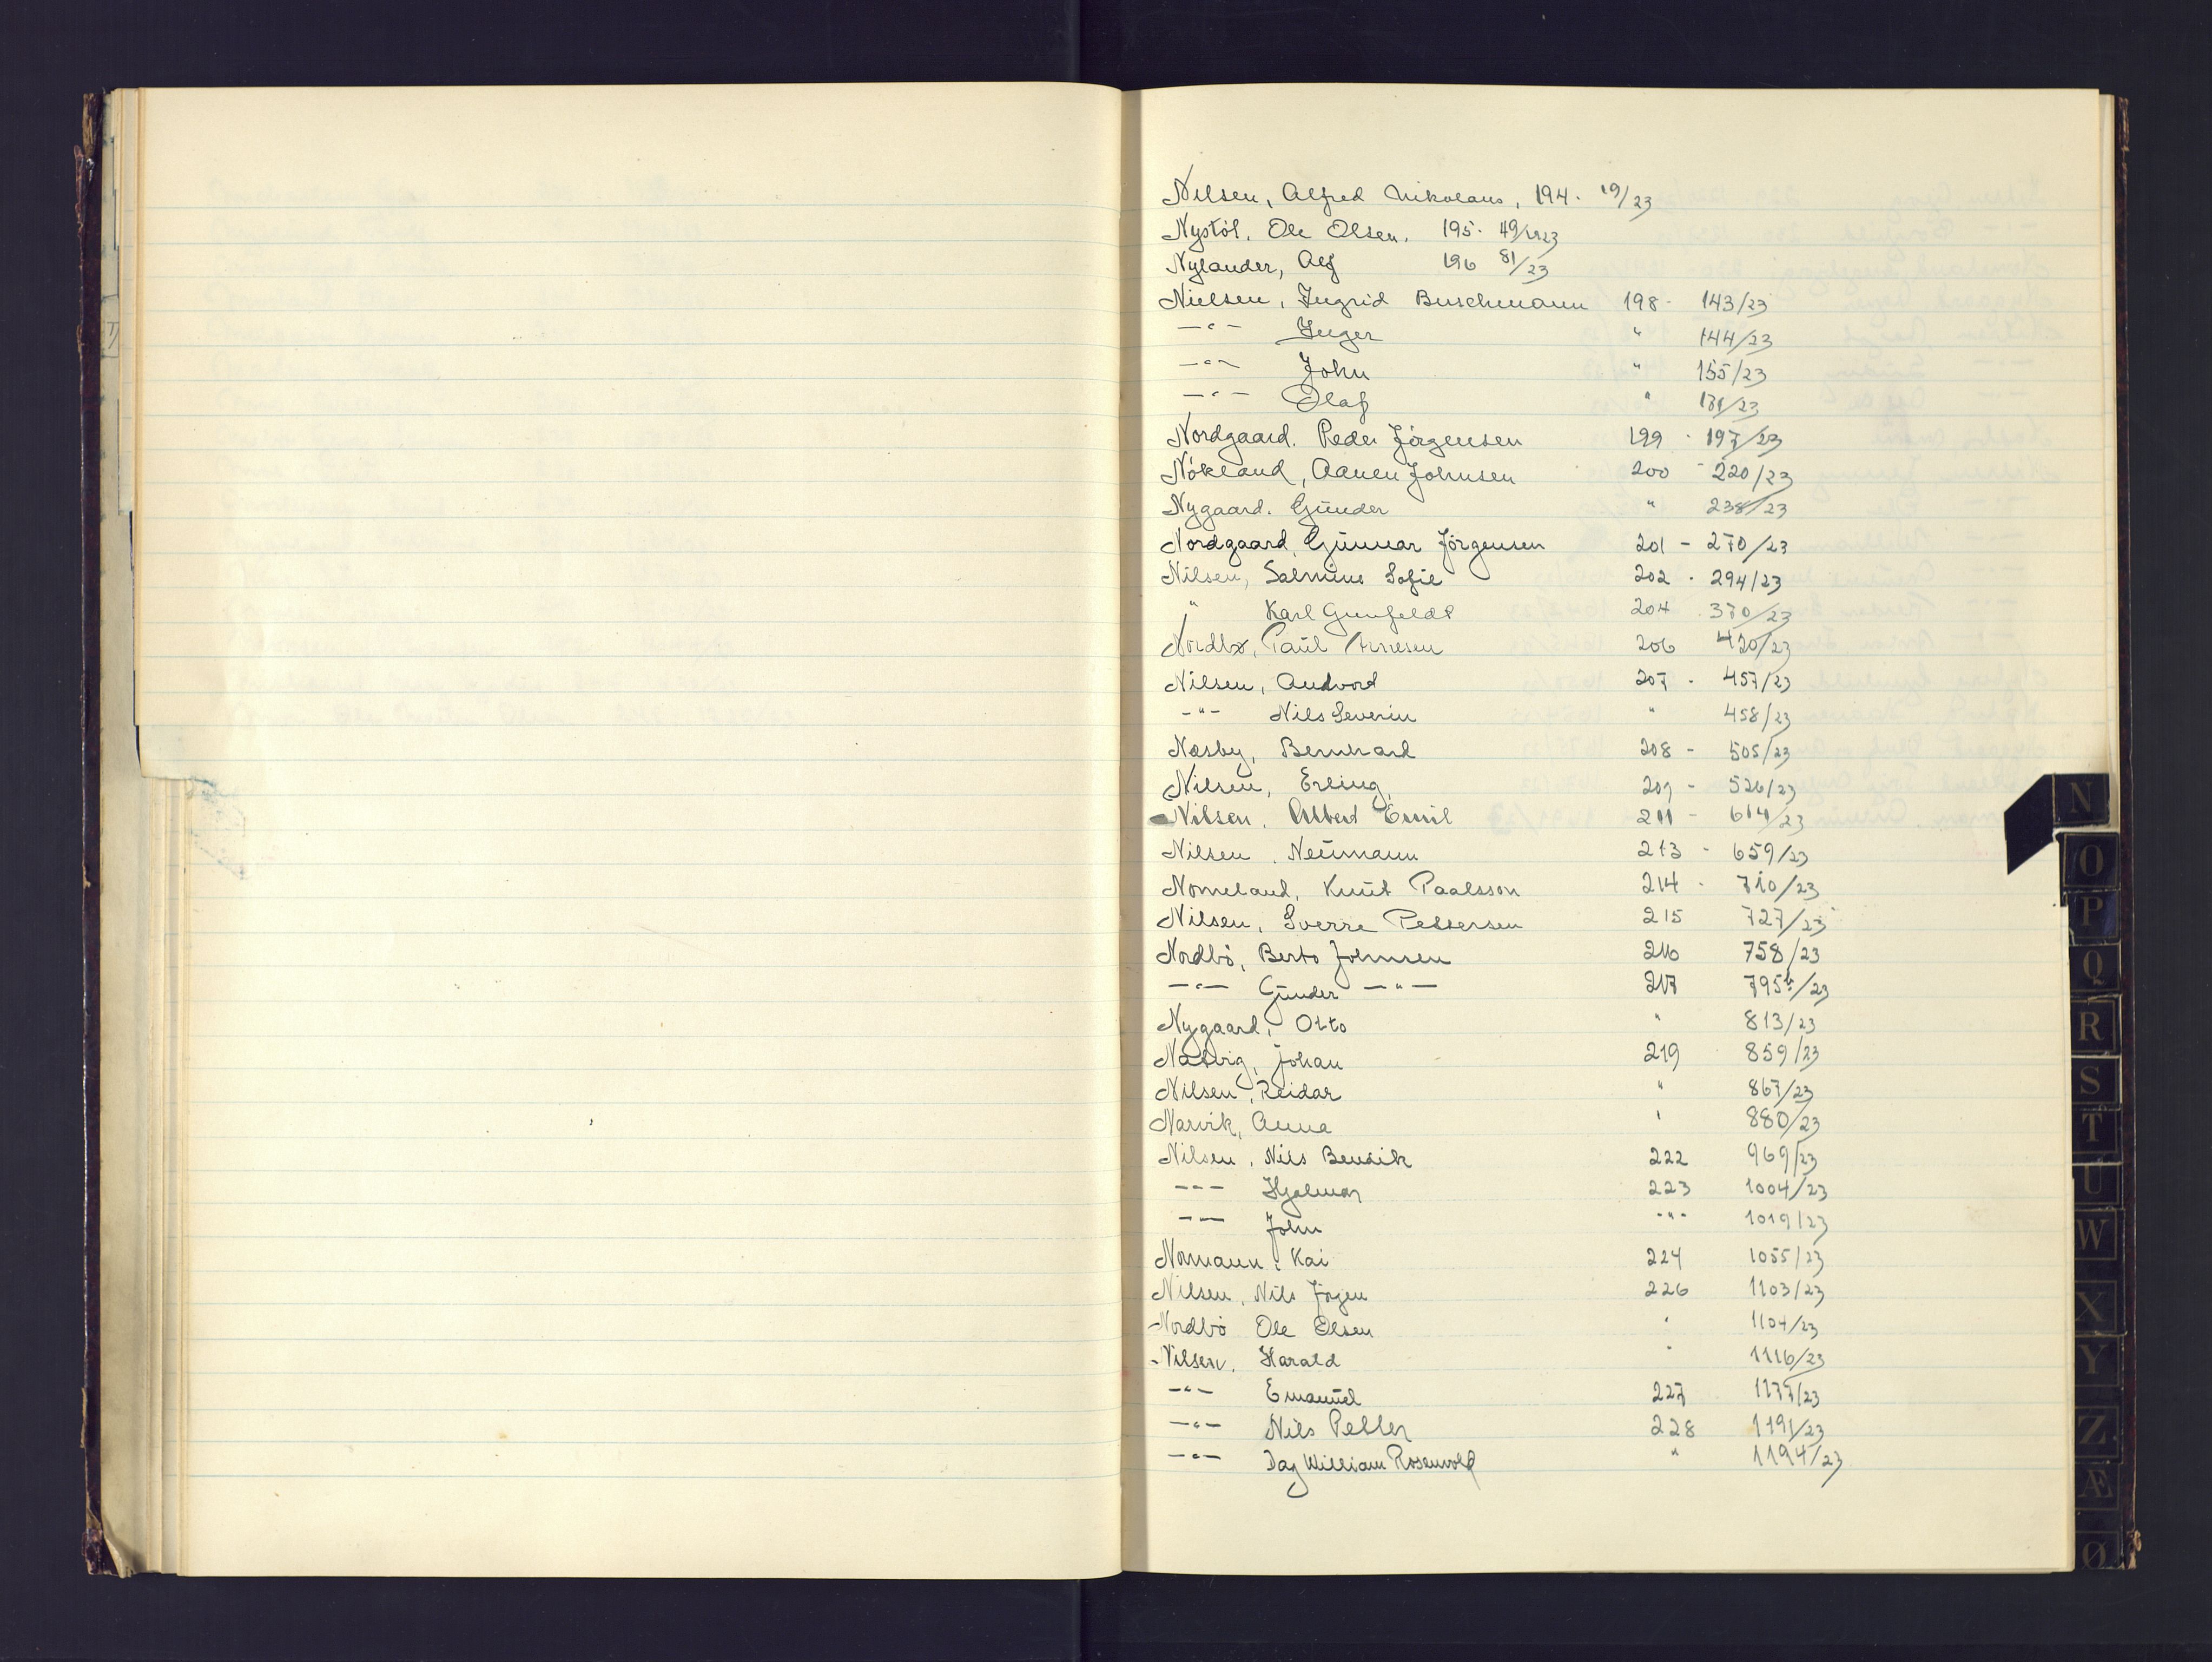 Nilsen, Alfred Nikolaus, 194. 19/23
Nystöl, Ole Olsen. 195. 49/1923
Nylander, Alf 196 81/23
Nielsen, Ingrid Buschmann 198. 143/23
—"— Inger " 144/23
—"— John " 155/23
—"— Olaf " 181/23
Nordgaard. Peder Jörgensen 199. 197/23
Nökland, Aanen Johnsen 200 - 220/23
Nygaard. Gunder " 238/23
Nordgaard, Gunnar Jörgensen 201 - 270/23
Nilsen, Salmine Sofie 202. 294/23
" Karl Gunfeldt 204. 370/23
Nordbø, Paul 206 420/23
Nilsen, Andvord 207. 457/23
-"- Nils Severin " 458/23
Næsby, Bernhard 208 - 505/23
Nilsen, Erling, 209 - 526/23
Nilsen. Albert Emil 211 - 614/23
Nilsen. Neumann 213 - 659/23
Nomeland, Knut Paalsson 214. 710/23
Nilsen, Sverre Pettersen 215 727/23
Nordbö, Berto Johnsen 216 758/23
—"— Gunder —"— 217 795b/23
Nygaard, Otto " 813/23
Natvig, Johan 219 859/23
Nilsen, Reidar " 867/23
Narvik, Anna " 880/23
Nilsen, Nils Bendik 222 969/23
--- Hjalmar 223 1004/23
--- John -"- 1019/23
Normann, Kai 224 1055/23
Nilsen, Nils Jörgen 226 1103/23
Nordbö Ole Olsen " 1104/23
Nilsen. Harald " 1116/23
-"- Emanuel 227 1177/23
-"- Nils Petter 228 1191/23
-"- Dag William Rosenvold " 1194/23
N
O
P
Q
R
S
T
U
W
X
Y
Z
Æ
Ø